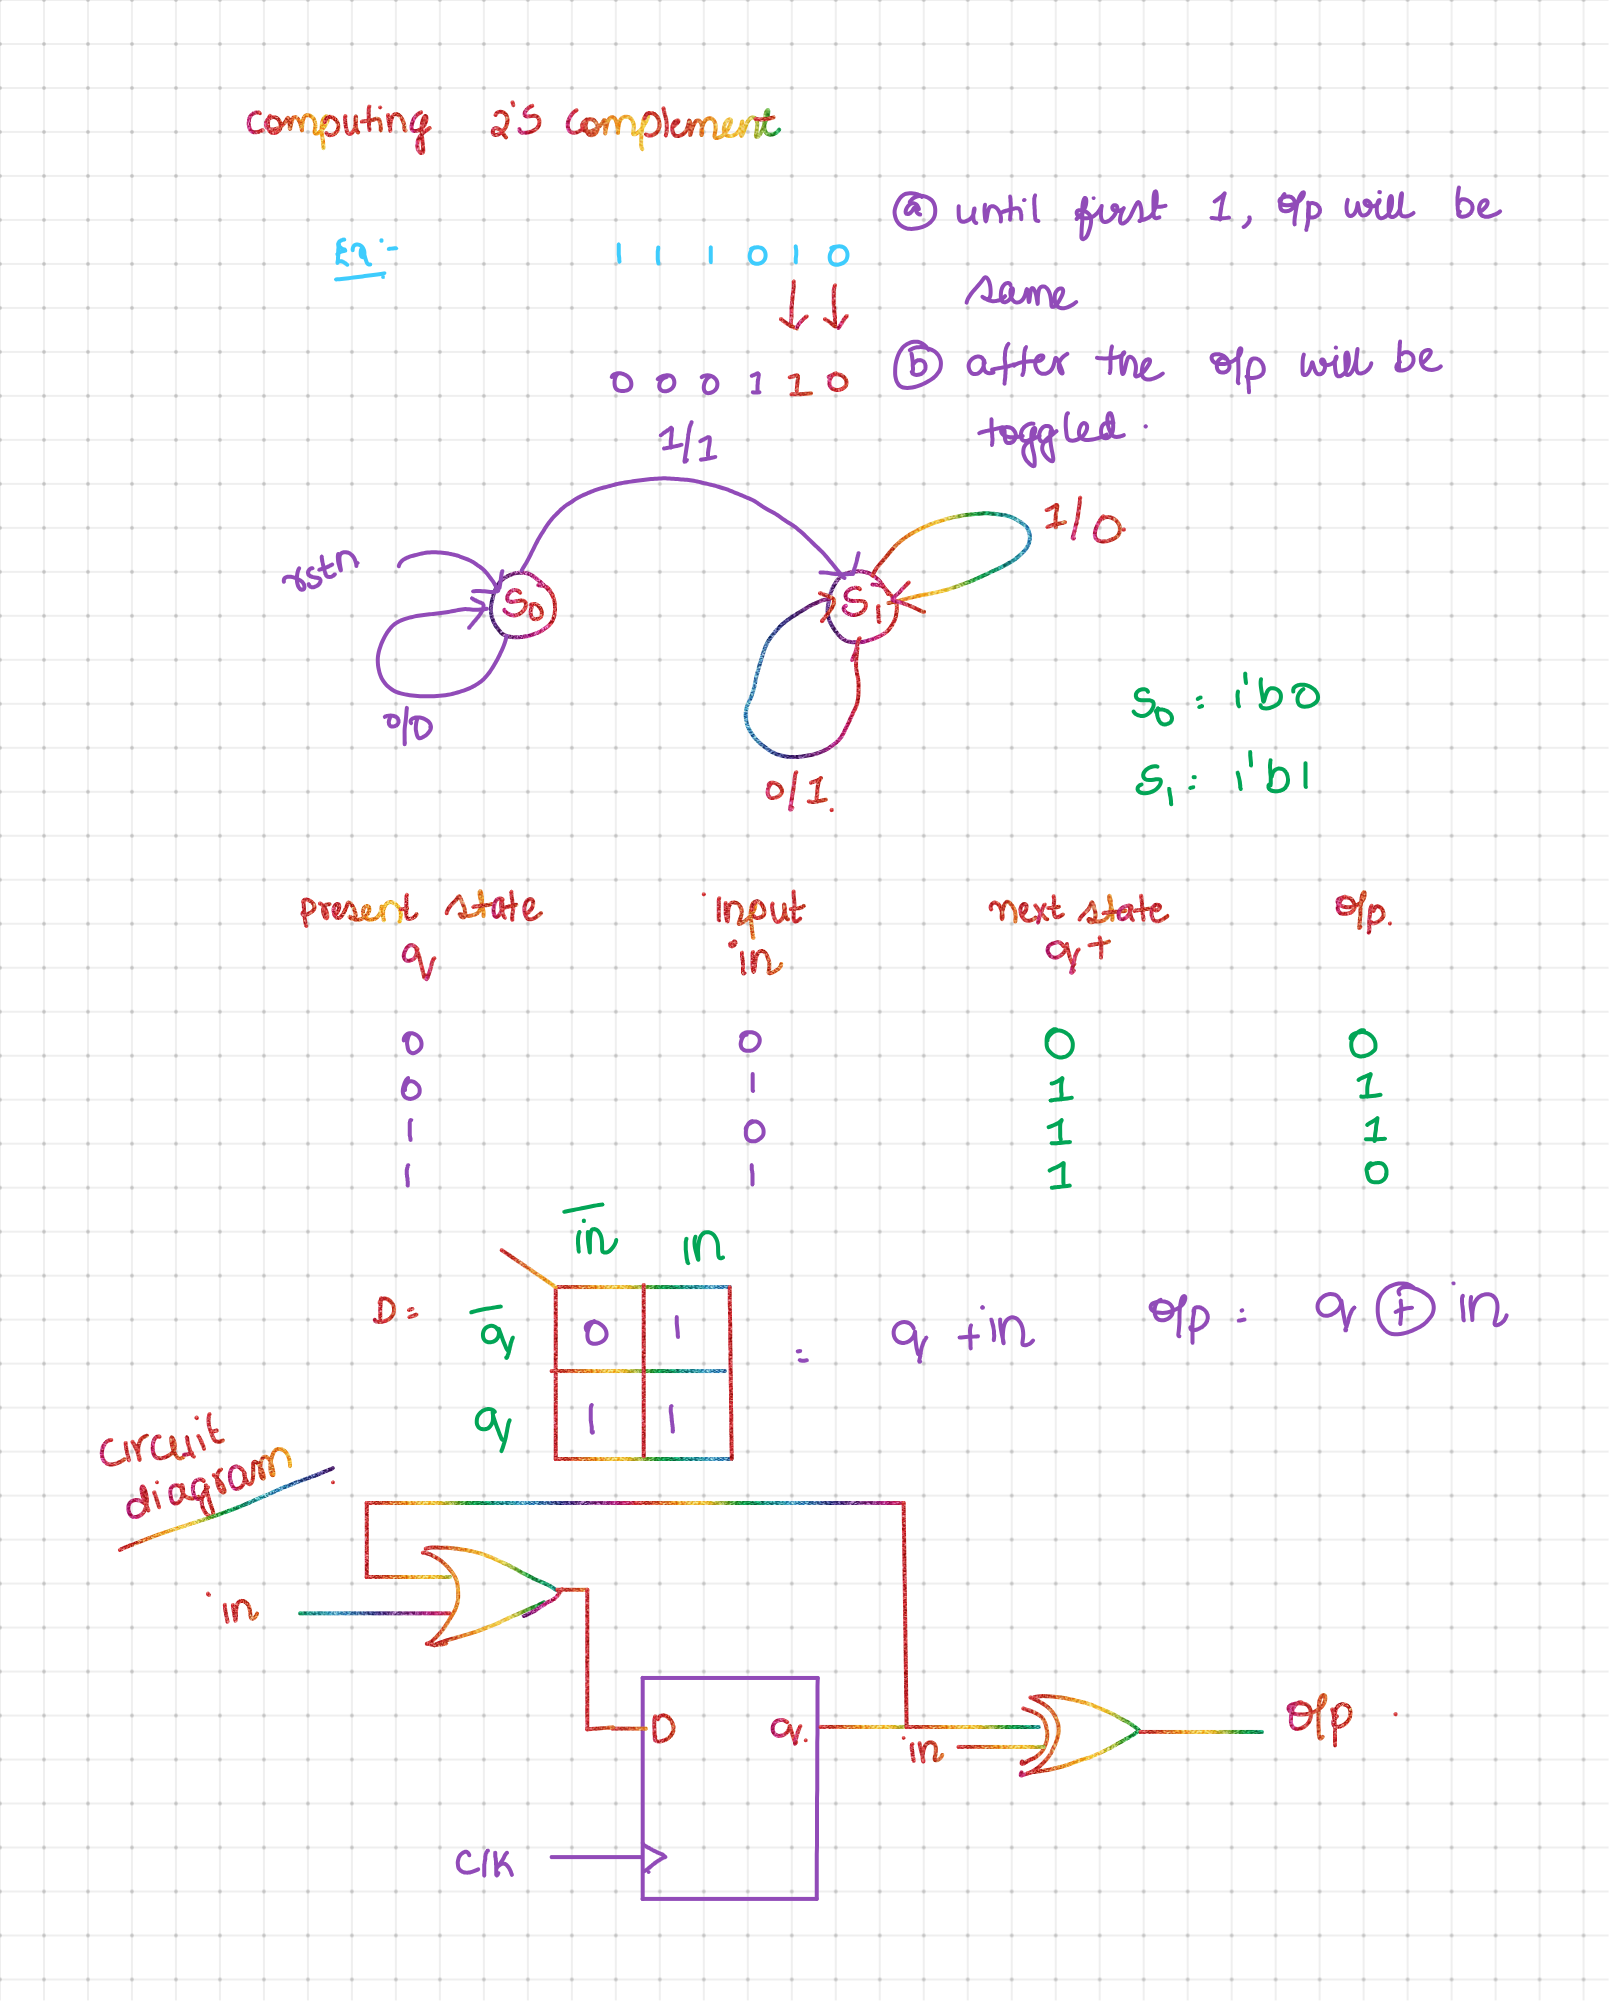 computing 2's complement
Ex:-
1 1 1 0 1 0
0 0 0 1 1 0
ⓐ until first 1, o/p will be
same
ⓑ after the o/p will be
toggled.
1/1
1/0
rstn
S0
S1
0/0
0/1.
S0 : 1'b0
S1 : 1'b1
present state input next state o/p.
q in q+
0 0 0 0
0 1 1 1
1 0 1 1
1 1 1 0
i̅n̅ in
D= q̅ 0 1 = q + in o/p = q ⊕ in
q 1 1
circuit
diagram
in
D q.
in
o/p.
clk